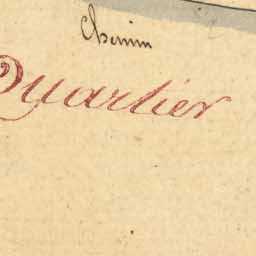 Chemin
Quartier